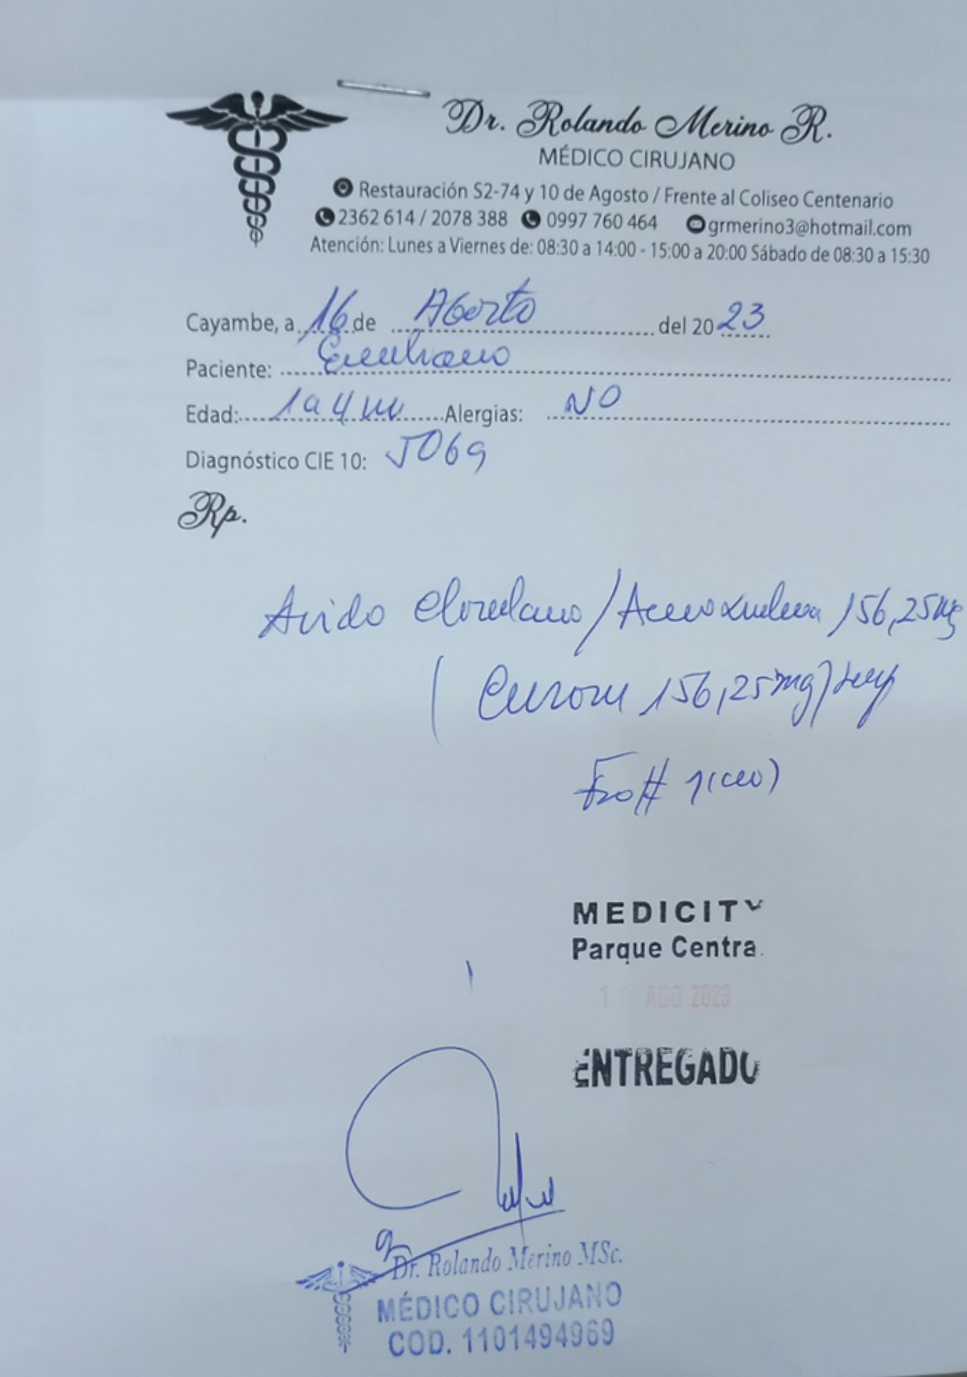 Dr. Rolando Merino R.
MÉDICO CIRUJANO
Restauración S2-74 y 10 de Agosto / Frente al Coliseo Centenario
2362 614 / 2078 388 0997 760 464 grmerino3@hotmail.com
Atención: Lunes a Viernes de: 08:30 a 14:00 - 15:00 a 20:00 Sábado de 08:30 a 15:30
Cayambe, a 16 de Agosto del 2023
Paciente: Emiliano
Edad: 1a 4m Alergias: NO
Diagnóstico CIE 10: J069
Rp.
Acido Clavulano / Amoxicilina 156,25mg
( 156,25mg)
Fco # 1(
MEDICITY
Parque Centra
AGO 2023
ENTREGADO
Dr. Rolando Merino MSc.
MÉDICO CIRUJANO
COD. 1101494969